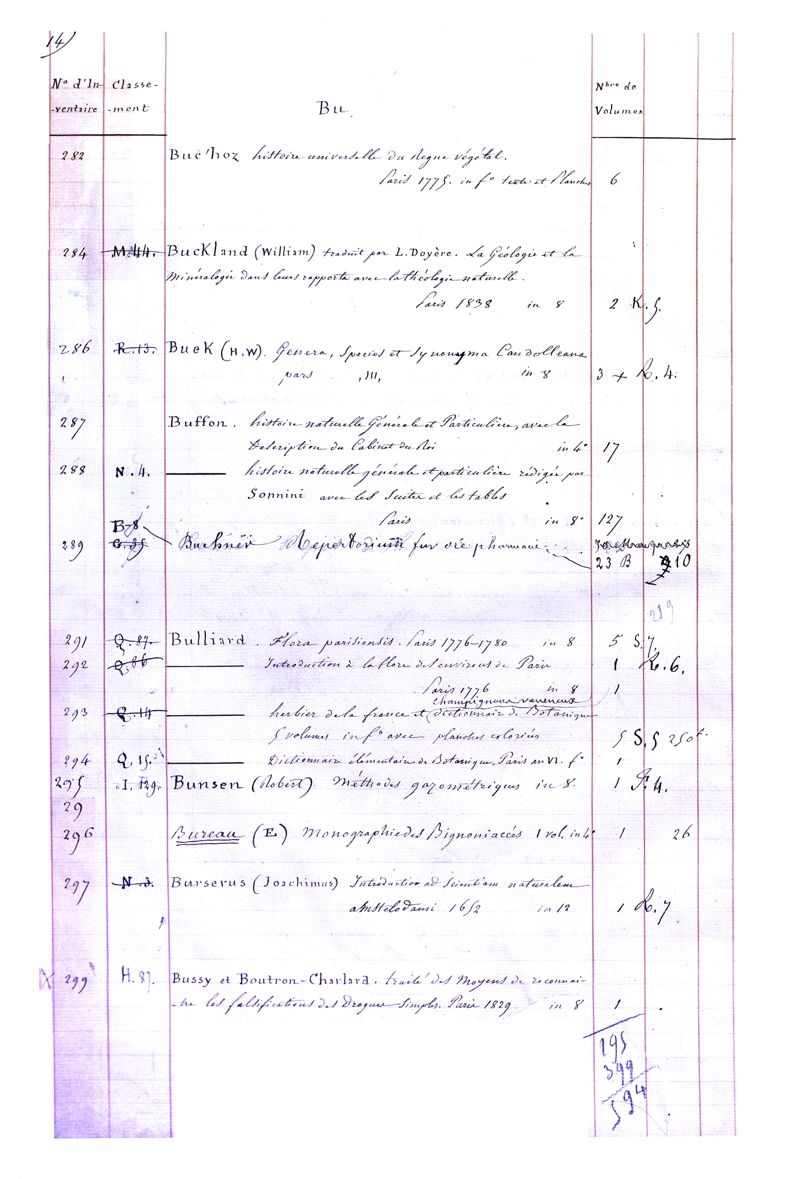 14)
N° d'In- Classe- Nbre de
-ventaire -ment Bu. Volumes
282 Buc'hoz histoire universelle du Regne végétal.
Paris 1775. in f° texte et Planches 6
284 M.44. Buckland (William) traduit par L. Doyère. La Géologie et la
Minéralogie dans leurs rapports avec la théologie naturelle.
Paris 1838 in 8 2 K.5.
286 R.13. Buek (H.W). Genera, Species et Synonyma Candolleana
pars ,III, in 8 3 + R.4.
287 Buffon. histoire naturelle Générale et Particulière, avec la
Description du Cabinet du Roi in 4° 17
288 N.4. histoire naturelle générale et particulière rédigée par
Sonnini avec les suites et les tables
Paris in 8° 127
B-8
289 Buchner Repertorium fur die pharmacie
23 B 10
219
291 Q.87. Bulliard. Flora parisiensis. Paris 1776-1780 in 8 5 S.7.
292 Q.86 Introduction à la flore des environs de Paris 1 R.6.
Paris 1776 in 8 1
champignons vénéneux
293 Q.14 herbier de la france et dictionnaire de Botanique
5 volumes in f° avec planches coloriés 5 S.5 250f
294 Q.15. Dictionnaire élémentaire de Botanique. Paris an VI. f° 1
295 I.129. Bunsen (Robert) Méthodes gazométriques in 8. 1 F.4.
29
296 Bureau (E) Monographie des Bignoniacées 1 vol. in 4° 1 26
297 N.3. Burserus (Joachimus) Introductio ad Scientiam naturalem
amstelodami 1652 in 12 1 R.7
X 299 H.87. Bussy et Boutron-Charlard. traité des Moyens de reconnai-
-tre les falsifications des Drogues simples. Paris 1829 in 8 1
195
399
594